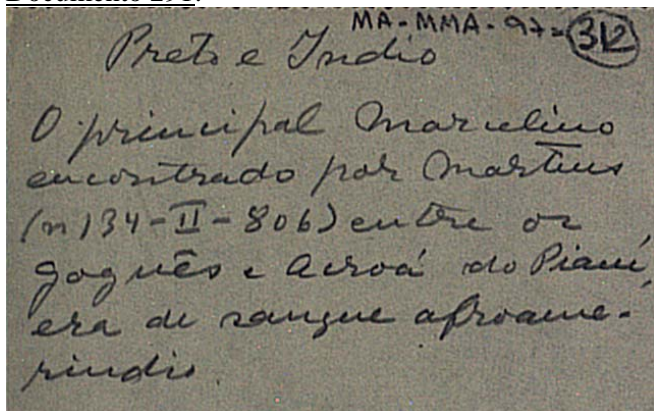 Documento 291:
MA-MMA-97-312
Preto e Indio
O principal Marcelino
encontrado por Martius
(n 134-II-806) entre os
goguês e Acroá do Piauí,
era de sangue afroame-
rindio